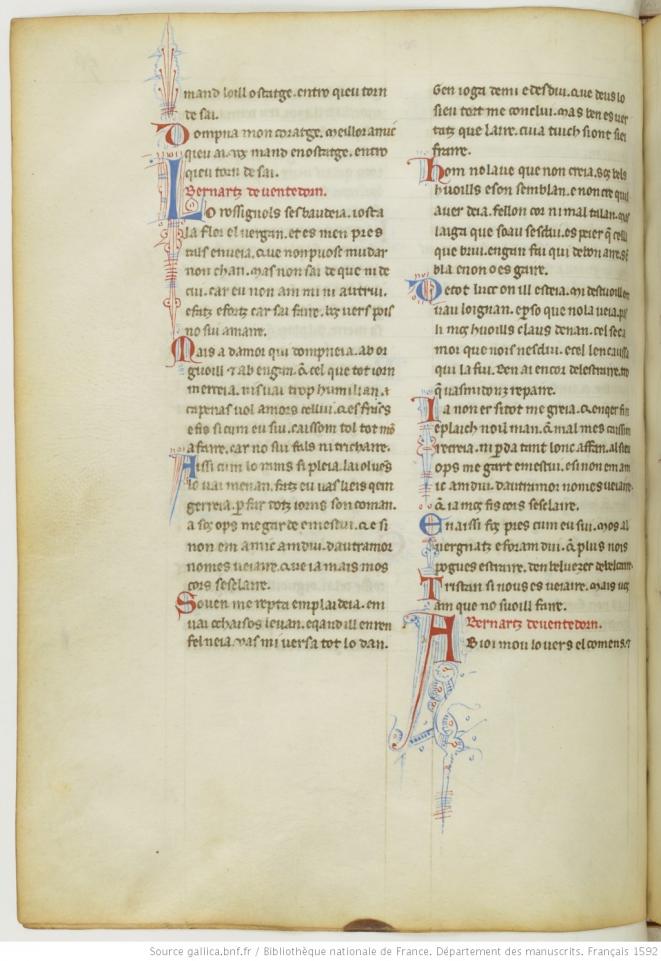 mand loill ostatge. entro queu torn
de sai.
Dompna mon coratge. meillor amic
queu ai. vos mand en ostatge. entro
queu torn de sai.
Bernartz de uentedorn.
Lo rossignols ses baudeia. iosta
la flor el uergan. et es men pres
tals enueia. que non puosc mudar
non chan. mas non sai de que ni de
cui. car eu non am mi ni autrui.
e fatz esfortz car sai faire. bos uers pois
no sui amaire.
Mais a damor qui dompneia. ab or
guoill & ab engan. que cel que tot iorn
merceia. nis uai trop humilian. a
capenas uol amors cellui. ques francs
e fis si cum eu sui. caissom tol tot mos
afaire. car no sui fals ni trichaire.
Aissi cum lo rams si pleia. lai o lues
lo uai menan. fatz eu uas lieis qem
gerreia. per far totz iorns son coman.
a sos ops me gar de em estui. que si
non em amic amdui. dautramor
nomes ueiaire. que ia mais mos
cors sesclaire.
Soven me repta em plaideia. em
uai ochaisos leuan. e qand ill en ren
felneia. uas mi uersa tot lo dan.
Gen ioga de mi e desdui. que deus lo
sieu tort me conclui. mas ben es uer
tatz que laire. cuia tuich siont siei
fraire.
Hom no la ue que non creia. sos bels
huoills e son semblan. e non cre quil
auer deia. fellon cor ni mal talan. mas
laiga que soau sesdui. es peier que cella
que brui. engan fai qui de bon aire. sem
bla e non o es gaire.
De tot luec on ill esteia. mi destuoill e
uau loignan. e per so que nola ueia. pas
li mos huoills claus denan. cel sec a
mor que nois nesdui. e cel lencaussa
qui la fui. Ben ai en cor del estraire. tro
quas midonz repaire.
Ia non er si tot me greia. quenqer fin
e plaich noil man. que mal mes caissim
recreia. ni perda tant lonc affan. al sieu
ops me gart em estui. e si non em am
ic amdui. dautramor nomes ueiaire
que ia mos fis cors sesclaire.
Enaissi fos pres cum eu sui. mos al
uergnatz e foram dui. que plus nois
pogues estraire. den beluezer de belcaire.
Tristan si nous es ueiaire. mais uos
am que no suoill faire.
Bernartz de uentedorn.
Ab ioi mou lo uers el comens. &
Source gallica.bnf.fr / Bibliothèque nationale de France. Département des manuscrits. Français 1592